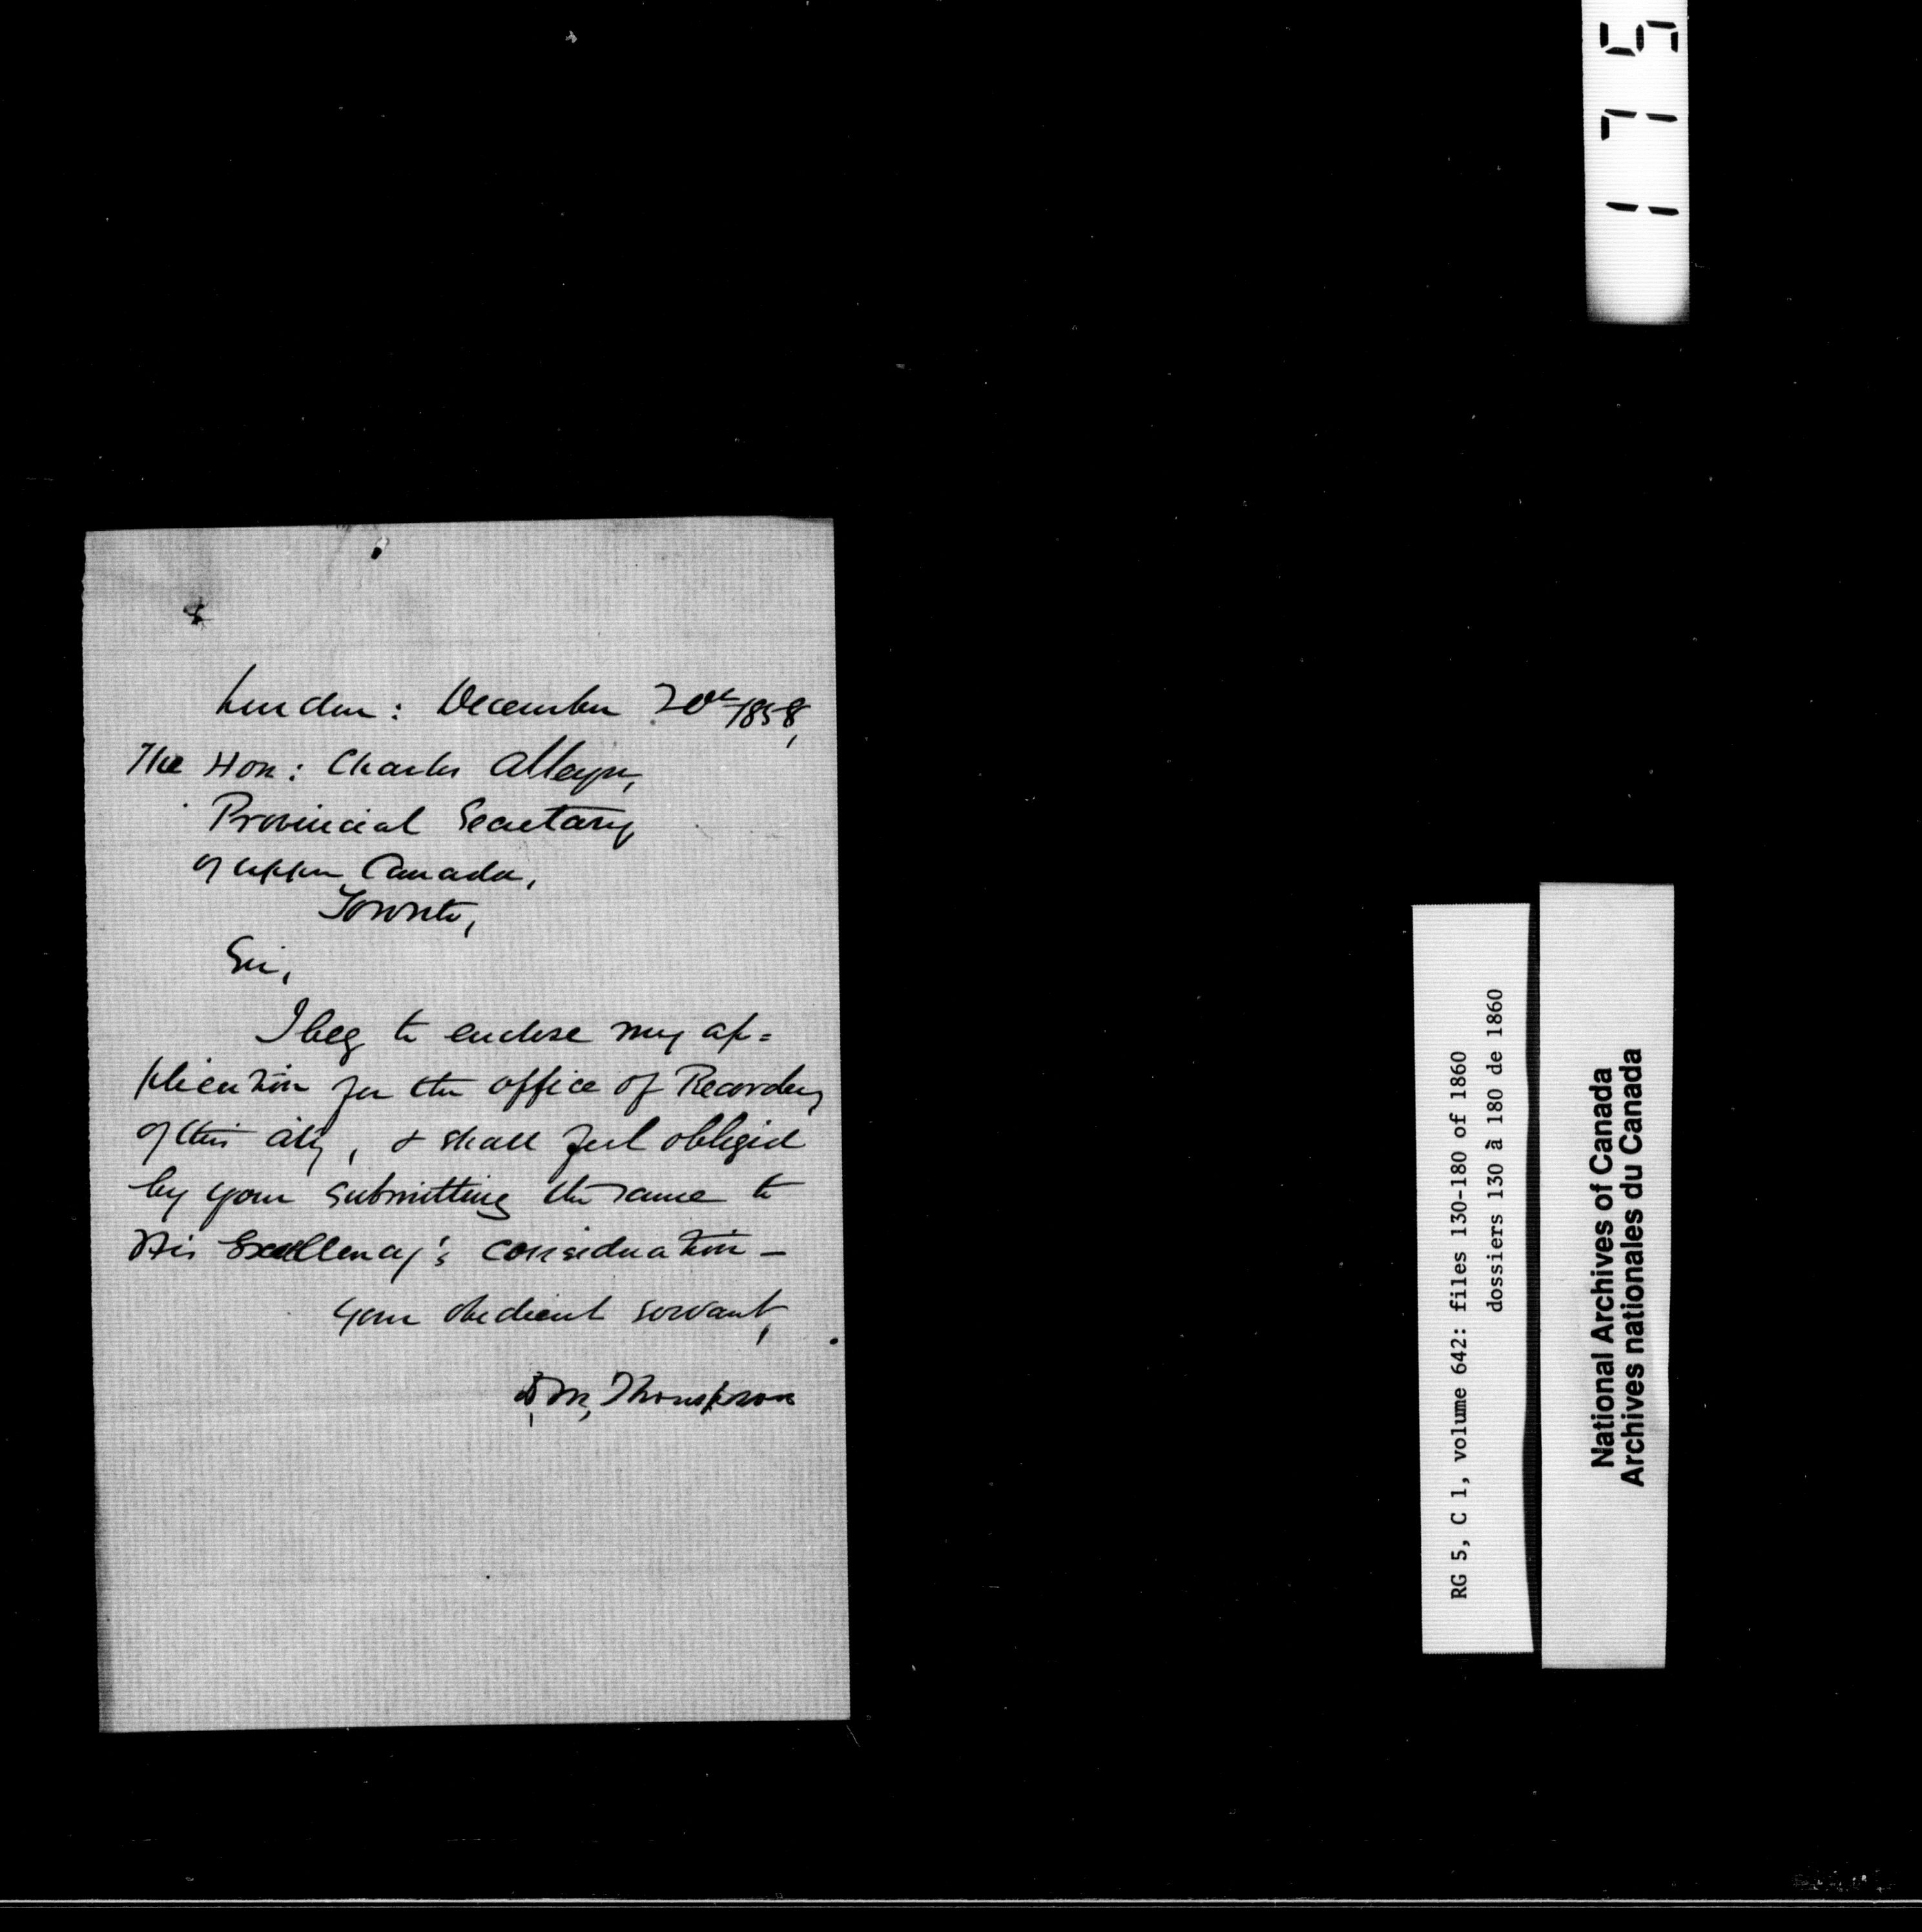 London: December 20th 1858,
The Hon: Charles Alleyn,
Provincial Secretary
of Upper Canada,
Toronto,
Sir,
I beg to enclose my ap=
plication for the office of Recorder,
of this city, & shall feel obliged
by your submitting the same to
His Excellency's consideration —
Your obedient servant,
D, M, Thompson
175
RG 5, C 1, volume 642: files 130-180 of 1860
dossiers 130 à 180 de 1860
National Archives of Canada
Archives nationales du Canada